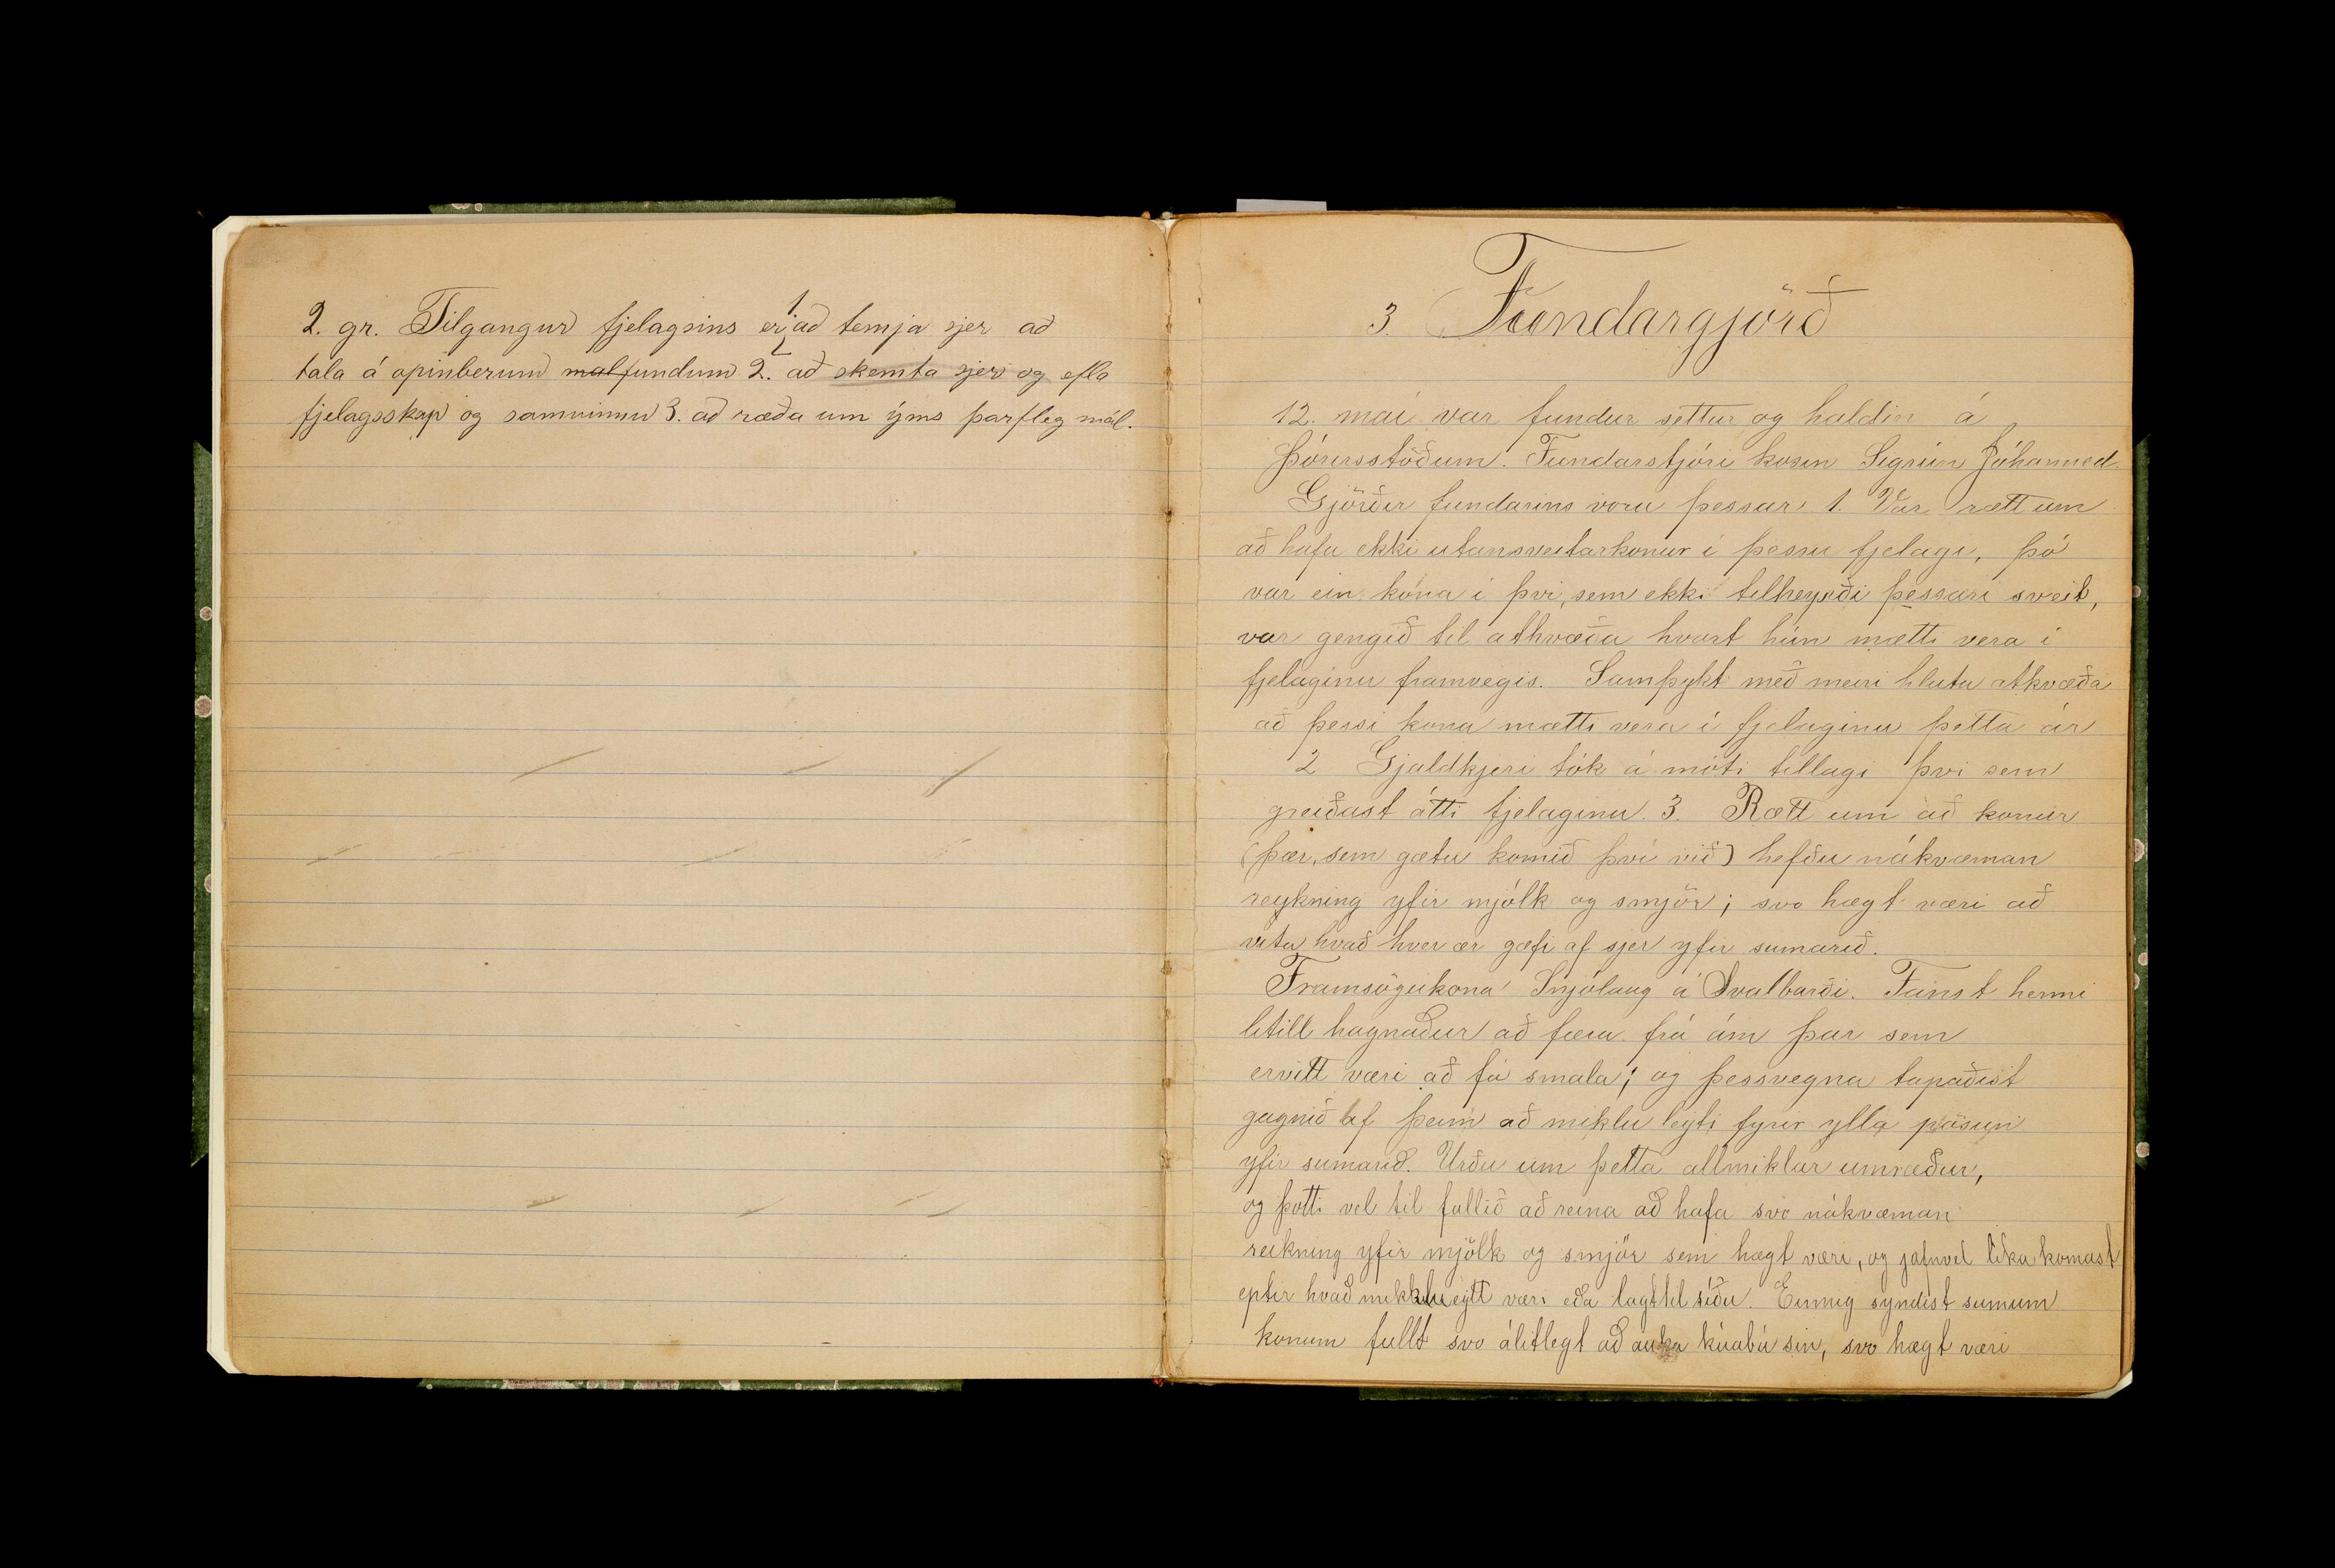 2. gr. Tilgangur fjelagsins er 1 að temja sjer að
tala á opinberum malfundum 2. að skemta sjer og efla
fjelagsskap og samvinnu 3. að ræða um ýms þarfleg mál.
3. Fundargjörð
12. maí var fundur settur og haldin á
Þórisstöðum. Fundarstjóri kosin Sigrún Jóhannesd.
Gjörðir fundarins voru þessar, 1. Var rætt um
að hafa ekki utansveitarkonur í þessu fjelagi, þó
var ein kona í því, sem ekki tilheyrði þessari sveit,
var gengið til athvæða hvort hún mætti vera í
fjelaginu framvegis. Samþykt með meiri hluta atkvæða
að þessi kona mætti vera í fjelaginu þetta ár
2 Gjaldkjeri tók á móti tillagi því sem
greiðast átti fjelaginu. 3. Rætt um að konur
(þær, sem gætu komið því við) hefðu nákvæman
reykning yfir mjólk og smjör; svo hægt væri að
vita hvað hver ær gæfi af sjer yfir sumarið.
Framsögukona Snjólaug á Svalbarði. Fanst henni
lítill hagnaður að færa frá ám þar sem
ervitt væri að fá smala; og þessvegna tapaðist
gagnið af þeim að miklu leyti fyrir ylla pösun
yfir sumarið. Urðu um þetta allmiklar umræður,
og þótti vel til fallið að reina að hafa svo nákvæman
reikning yfir mjólk og smjör sem hægt væri, og jafnvel líka komast
eptir hvað miklu eytt væri eða lagt til síðu. Einnig syndist sumum
konum fullt svo álitlegt að auka kúabú sín, svo hægt væri